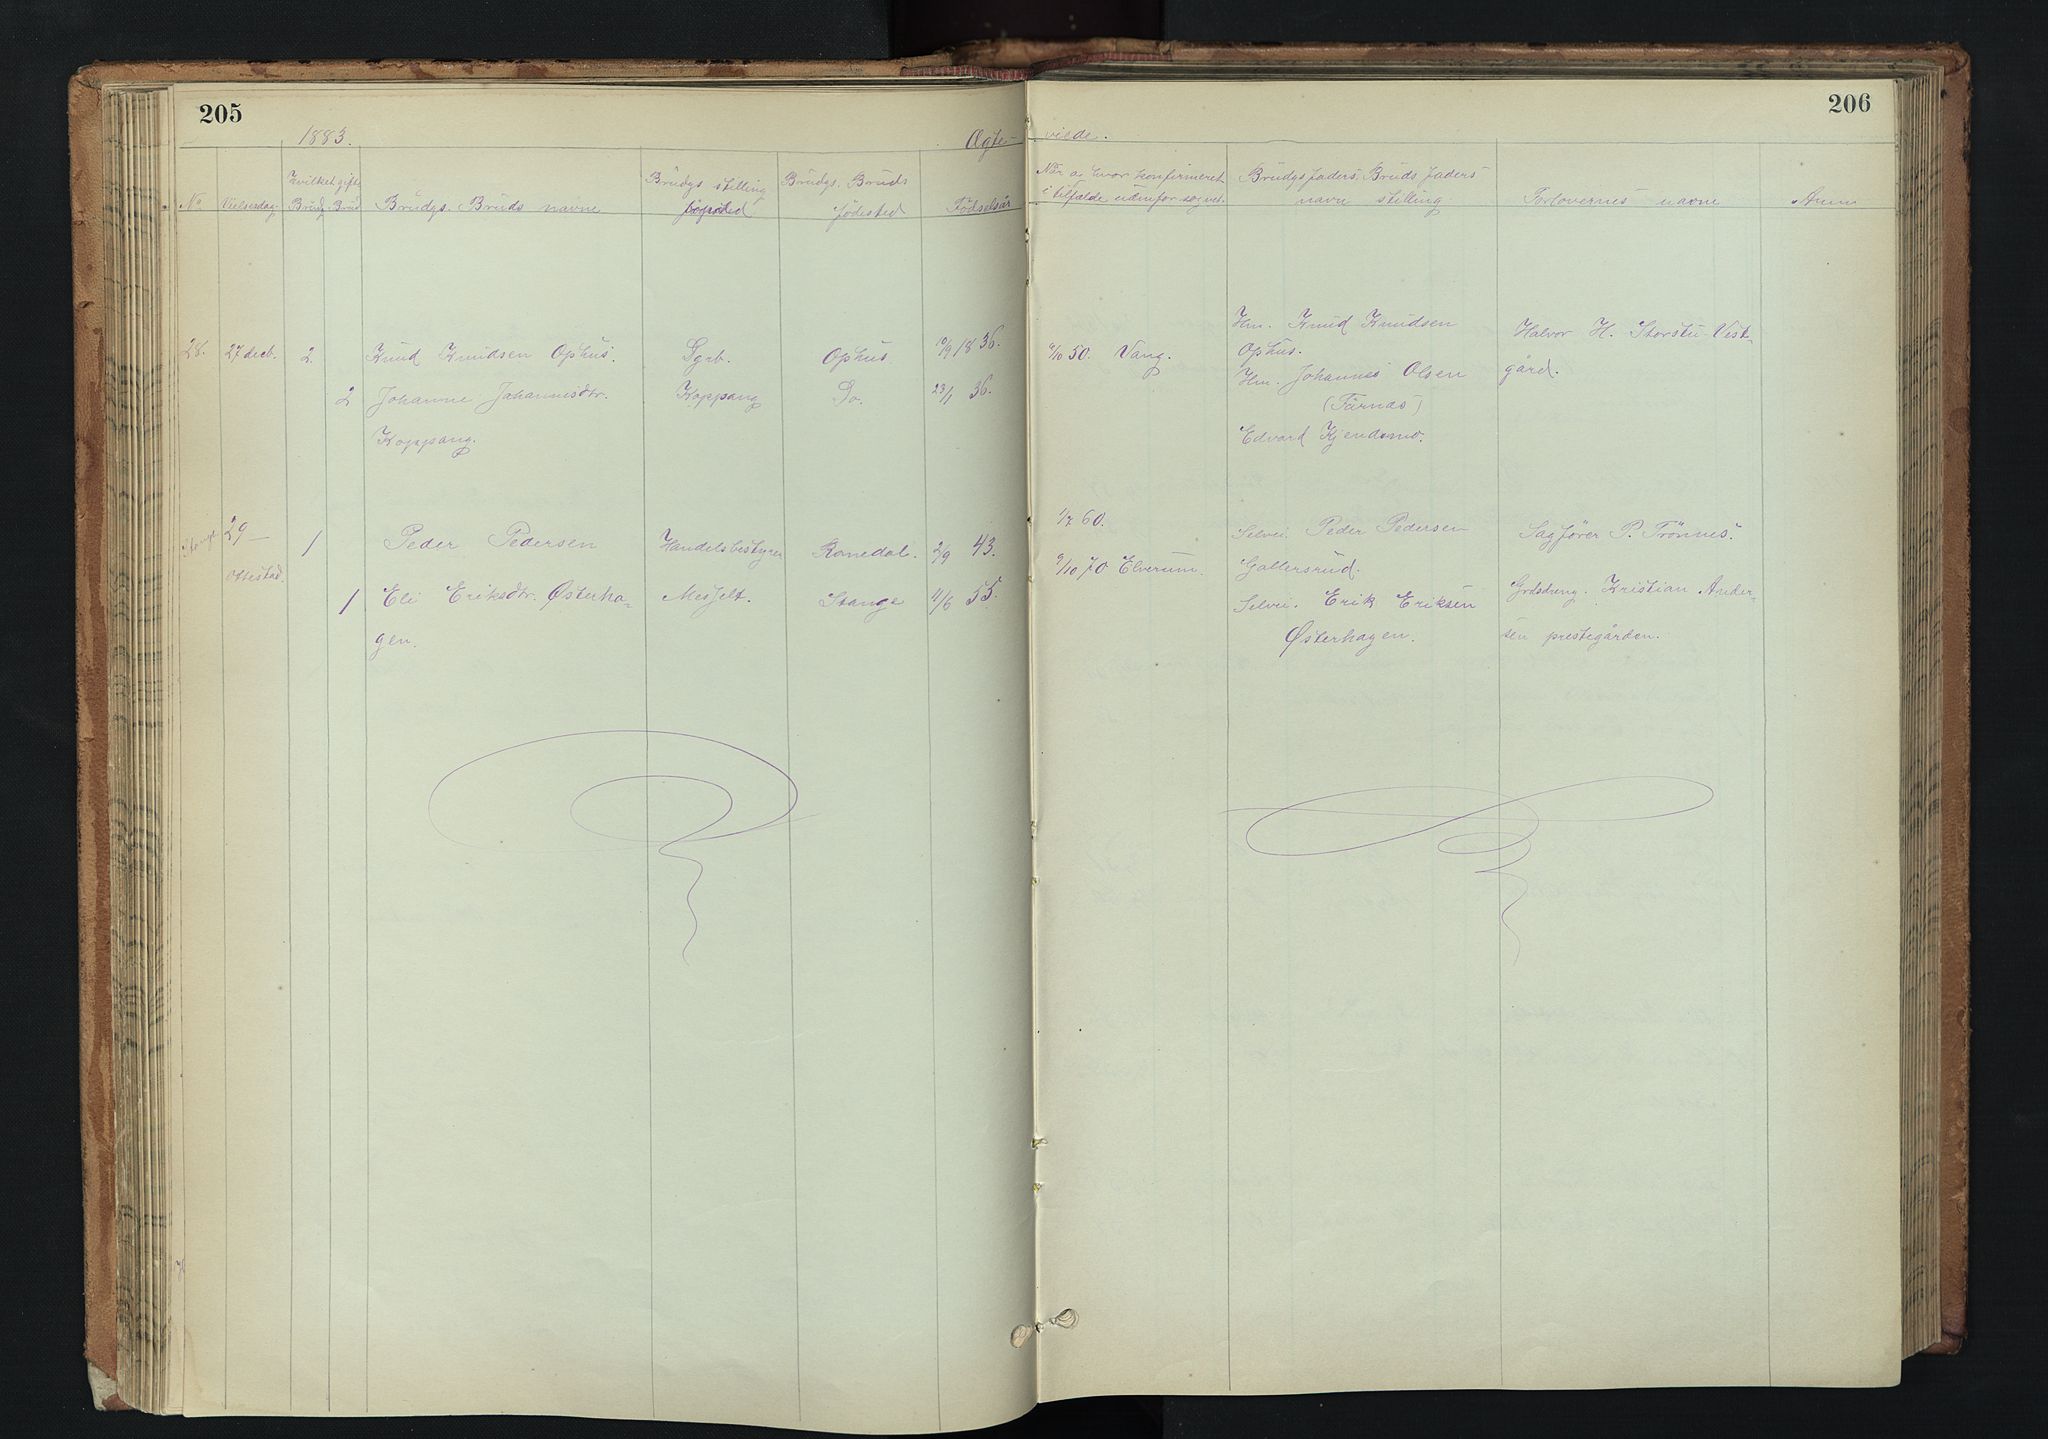 205
206
1883.
Ægte-
viede.
No
Vielsesdag.
Hvilket gifte
Brudg. Brud
Brudgs. Bruds navne
Brudgs stilling
bopsted
Brudgs. Bruds
fødested
Fødselsår
Når og hvor konfirmeret
i tilfælde udenfor sognet.
Brudgs faders. Bruds faders
navn stilling
Forlovernes navne
Anm
28.
27 decb.
2.
Knud Knudsen Ophus.
Ophus.
10/9 1836.
9/10 50. Vang.
Hm. Knud Knudsen
Ophus.
Halvor H. Storstu-Vest-
gård.
2
Johanne Johannesdtr.
Koppang.
Koppang
Do.
23/1 36.
Hm. Johannes Olsen
(Tårnæs)
Edvard Kjendsmo.
Stange
29 –
Ottestad.
1
Peder Pedersen
Handelsbestyrer
Romedal.
2/9 43.
1/7 60.
Selvei. Peder Pedersen
Gallersrud.
Sagfører P. Trønnes.
1
Eli Eriksdtr. Østerha-
gen.
Messelt.
Stange
11/6 55.
9/10 70 Elverum.
Selvei. Erik Eriksen
Østerhagen.
Grdsdreng. Kristian Ander-
sen prestegården.